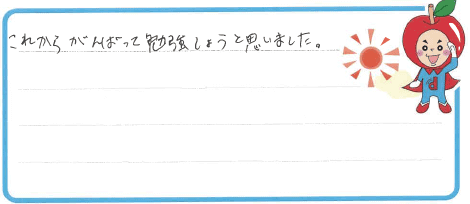 これから がんばって勉強しようと思いました。